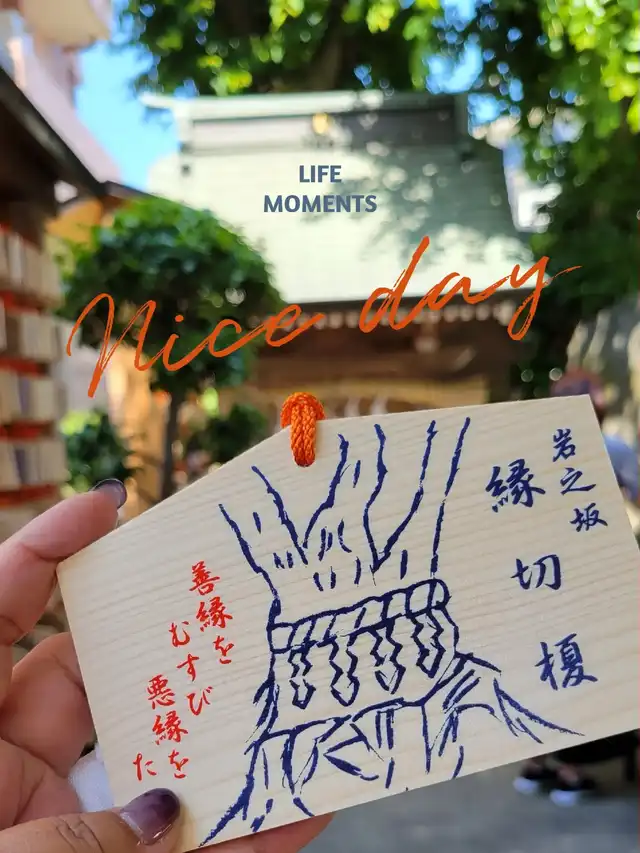 LIFE
MOMENTS
Nice day
岩之坂
縁切榎
善縁を
むすび
悪縁を
た